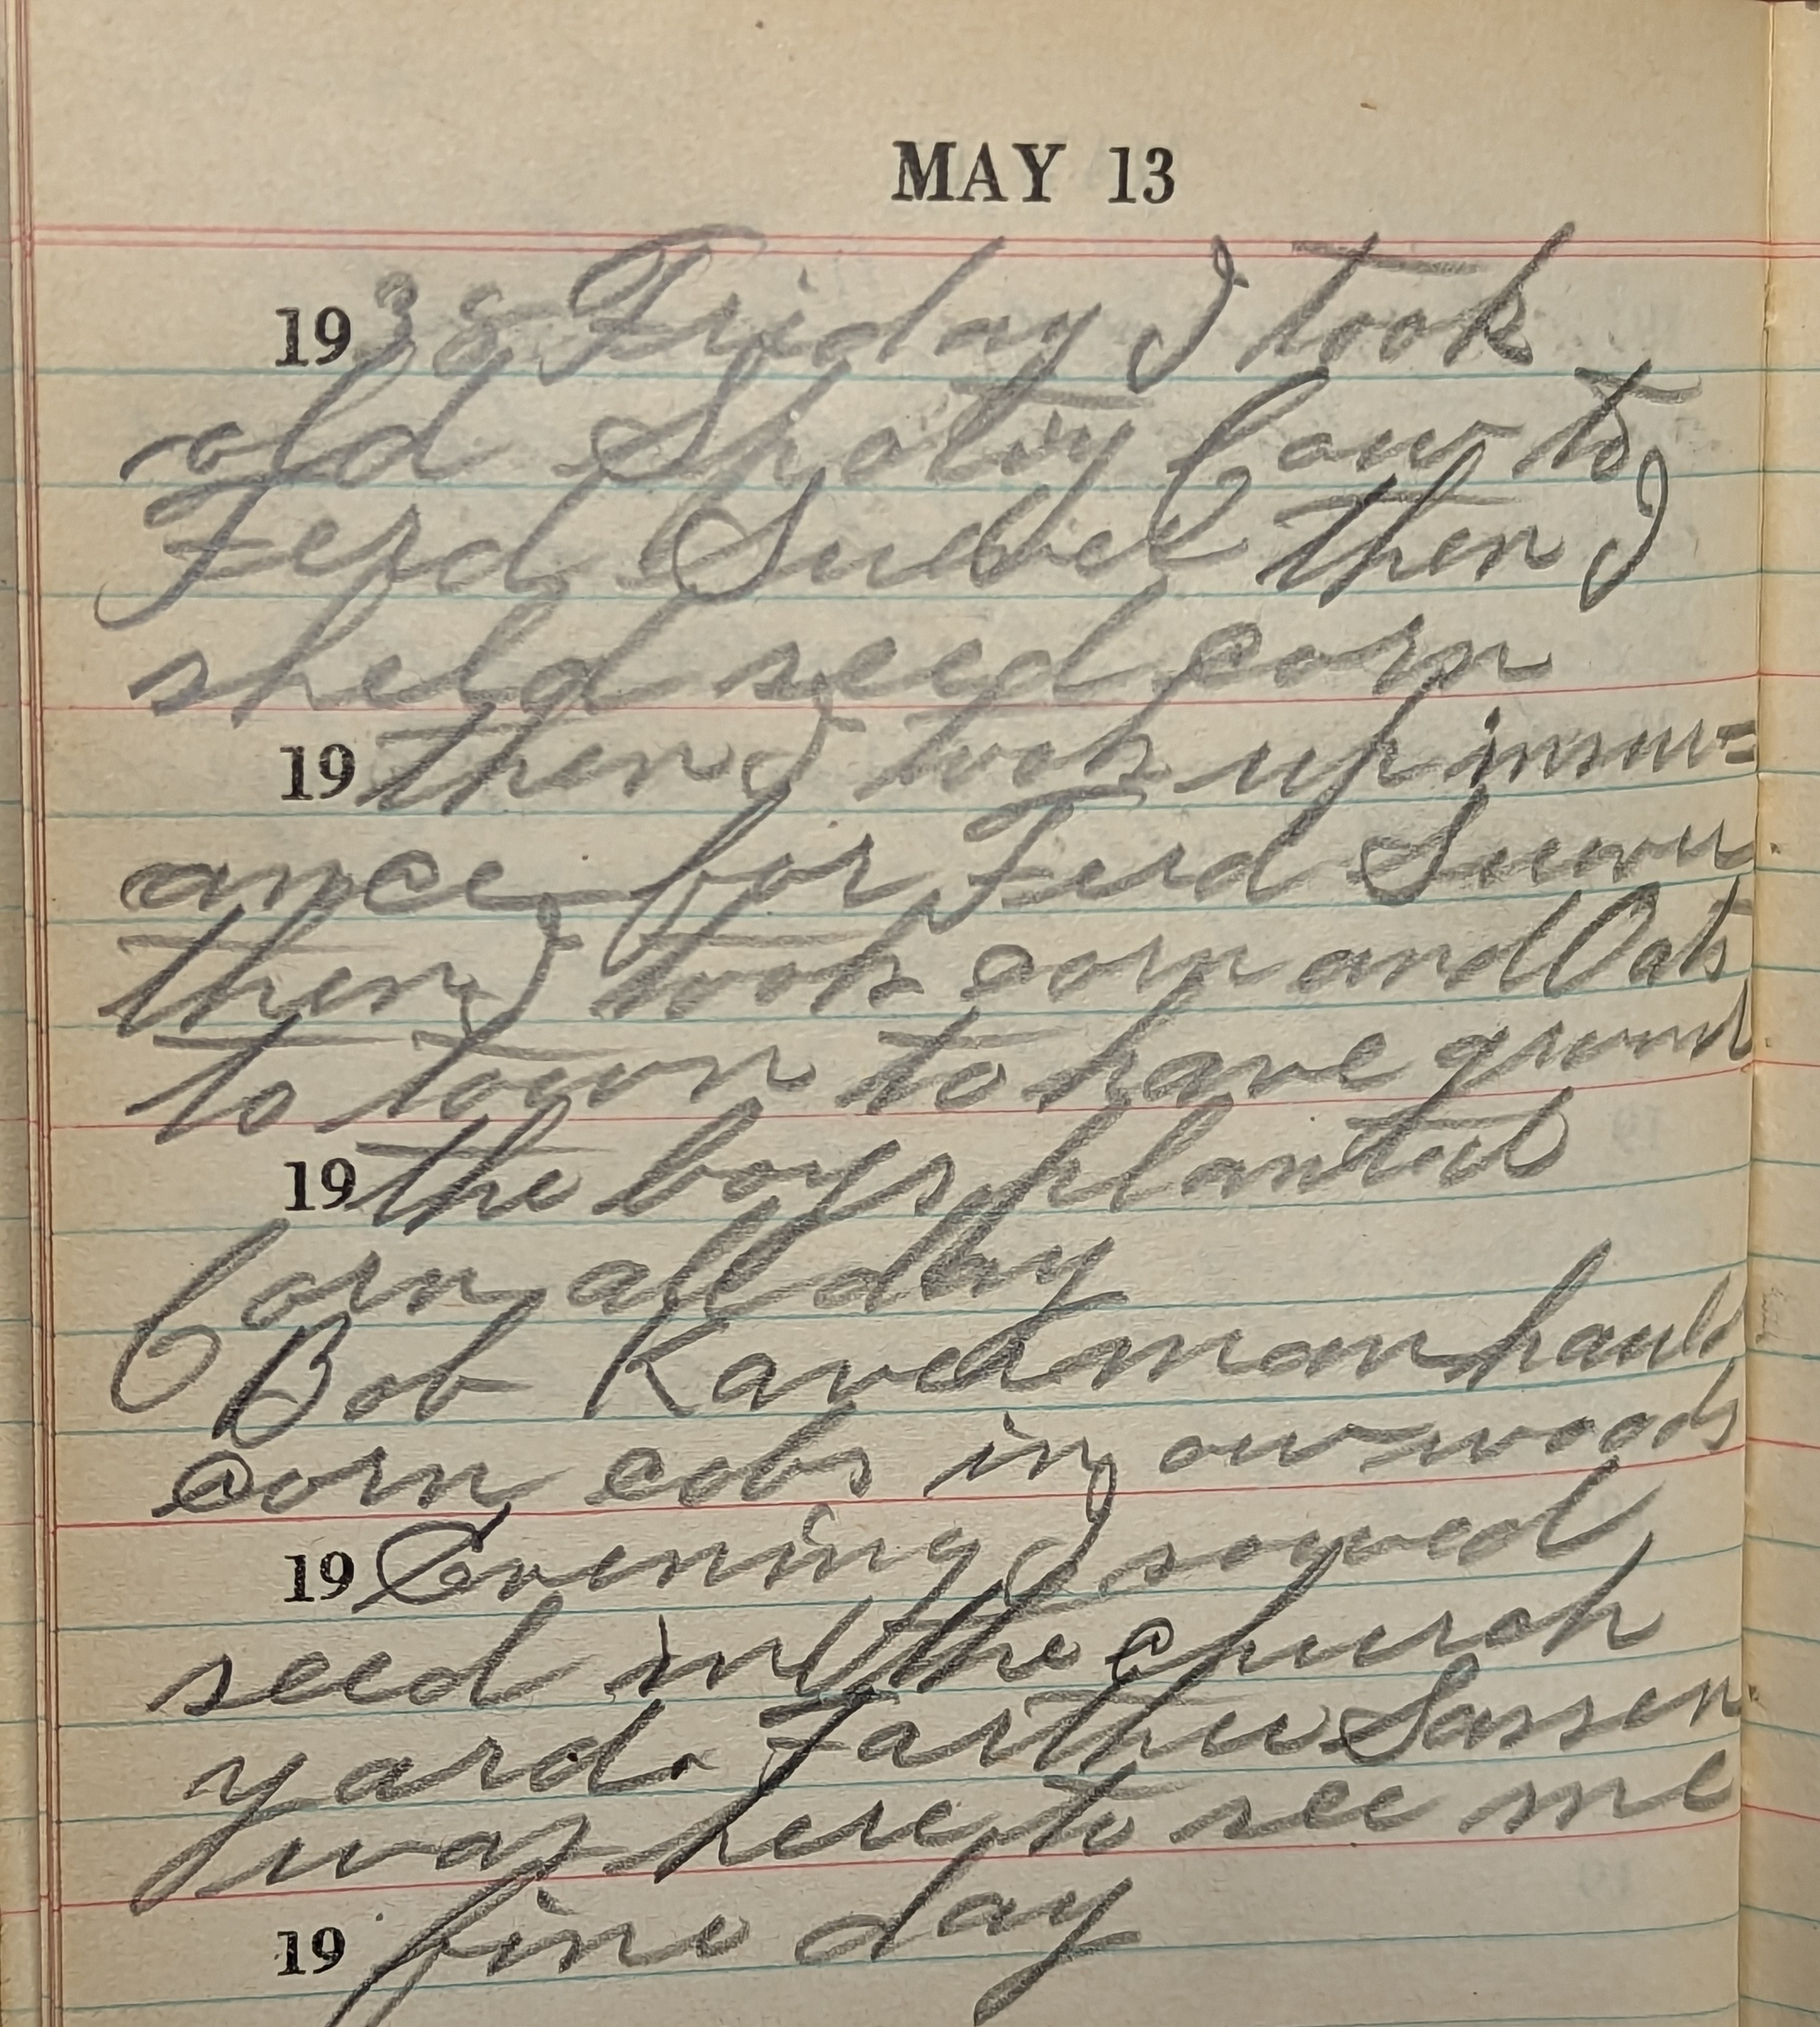 MAY 13
1938 Friday I took
old Spotty Cow to
Ferd then I
sheld seed corn
19 then I took up insur=
ance for Ferd
then I took corn and Oats
to town to have ground
19 the boys planted
Corn all day
Bob haul
corn cobs in our woods
19 Evening I sowed
seed in the church
yard. Farther Sassen
was here to see me
19 fine day